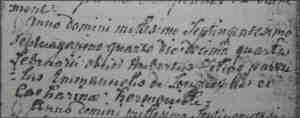 mont.
Anno domini millesimo Septingentesimo
Septuagesimo quarto die decima quarta
februarii obiit hubertus filius parvu
lus Emmanuelis de et
Catharina
Anno domini millesimo